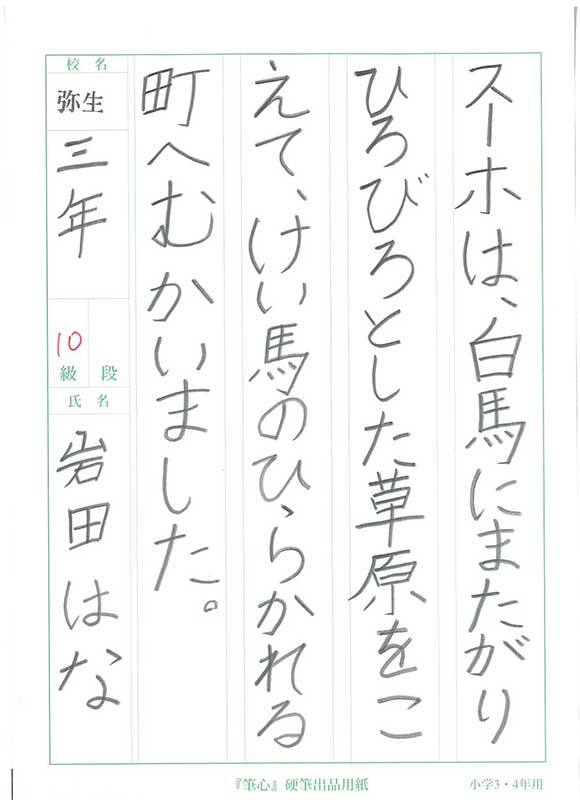 スーホは、白馬にまたがり
ひろびろとした草原をこ
えて、けい馬のひらかれる
町へむかいました。
校名
弥生
三年
10
級 段
氏名
岩田はな
『筆心』硬筆出品用紙
小学3・4年用